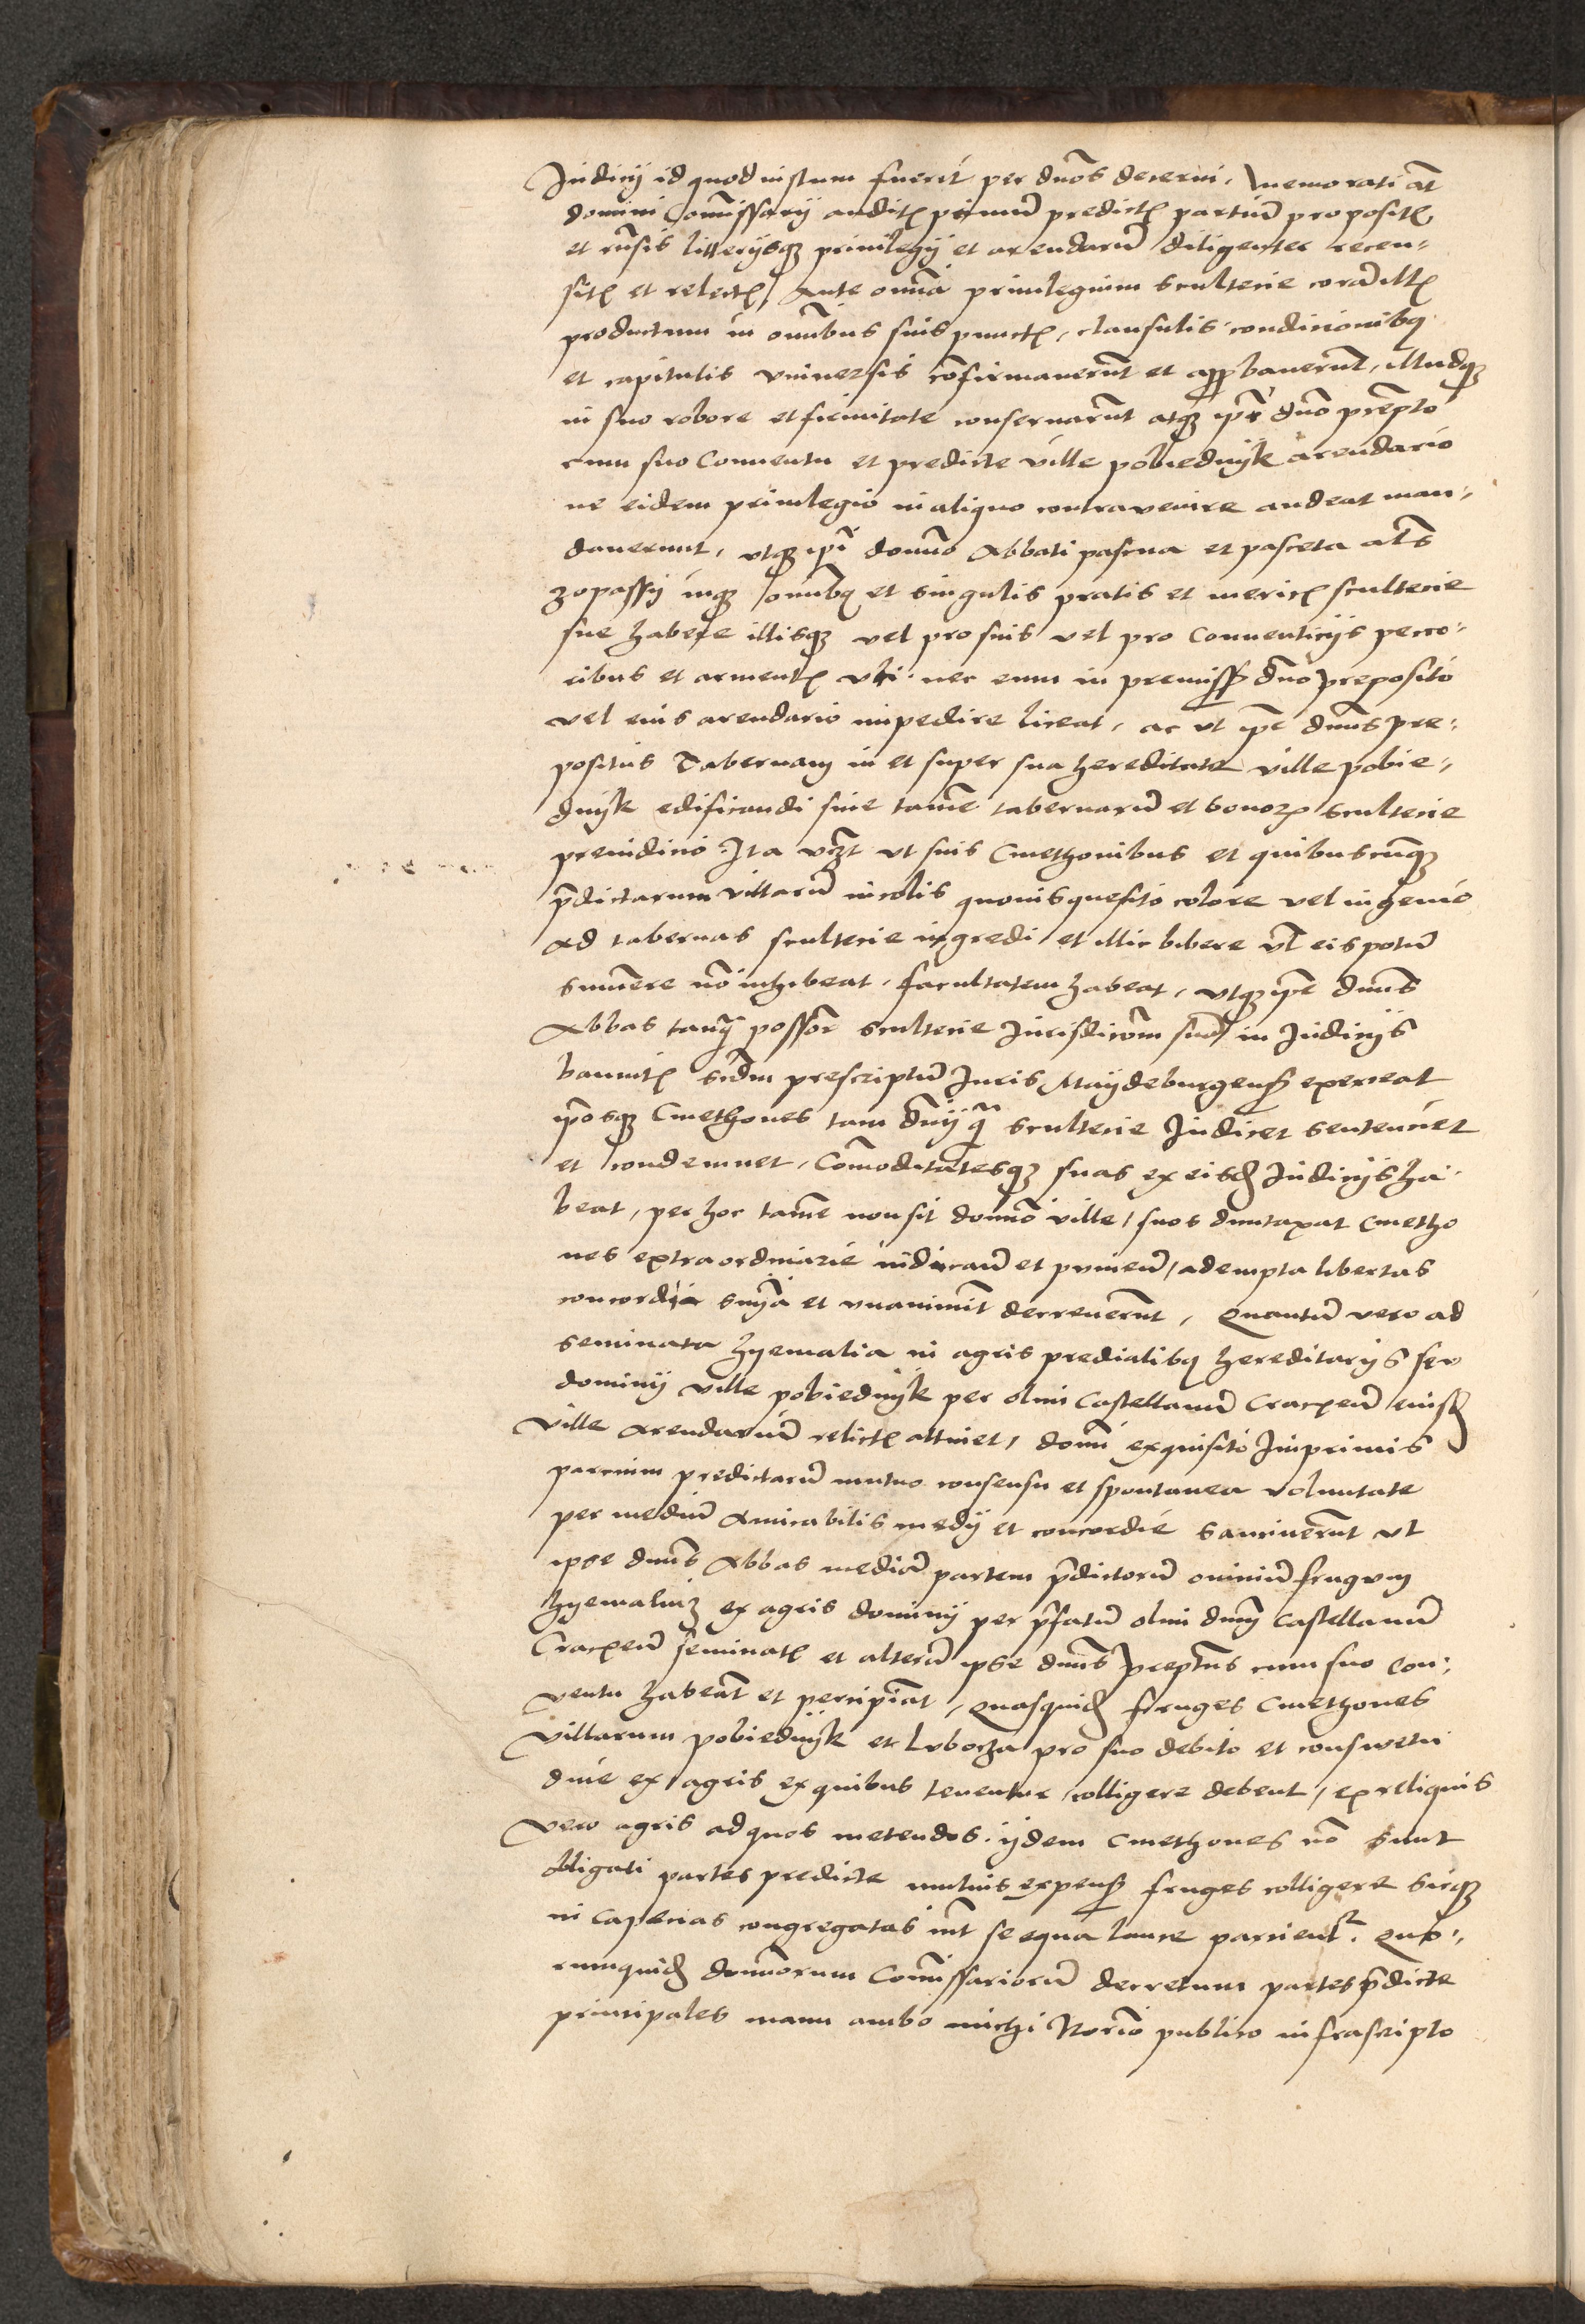 Judicij id quod iustum fuerit per dnos decerni, memorati at
domini Comissarij audit primu predict partiu proposit
et rnsis litterisq privilegij et arendaru diligenter recen-
sit et relect, Ante omnia privilegium scultecie cora illis
productum in omnibus suis punct, clausulis condicionibq
et capitulis vniversis cofirmaverunt et approbaverunt, illudq
in suo robore et firmitate conservarunt atq ipi dno prepto
cum suo Conventu et predicte ville pobiednyk arendario
ne eidem privilegio in aliquo contravenire audeat man-
daverunt, vtq ipi domino Abbati pascua et pasceta als
zopassy inq omnibq et singulis pratis et meric scultecie
sue habere illisq vel pro suis vel pro Conventicijs pecco-
ribus et arment vti nec eum in premiss dno preposito
vel eius arendario impedire liceat, ac vt ipe dnus pre-
positus Tabernam in et super sua hereditate ville pobie-
dnyk edificandi sine tame tabernaru et bonoru scultecie
preiudicio. Ita vzt vt suis Cmethonibus et quibuscuq
pdictarum villaru incolis quovis quesito colore vel ingenio
Ad tabernas scultecie ingredi et illic bibere vl eis potu
sumere no inhibeat, facultatem habeat, vtq ipe dnus
Abbas tanq possor scultecie Jurisdicom sua in Judicijs
bannit scdm prescriptu Juris Maydeburgens exerceat
iposq Cmethones tam dnij q scultecie Judicet sentenciet
et condemnet, Comoditatesq suas ex eisd Judicijs ha-
beat, per hoc tame non sit domno ville, suos duntaxat Cmetho
nes extraordinarie iudicau et puniend, adempta libertas
concordia smia et vnanimit decreverunt, Quantu vero ad
seminata hyemalia in agris predialibq hereditarijs seu
dominij ville pobiednyk per olim Castellanu Cracoeu eiusd
ville Arendariu relict attinet, domi exquisito Inprimis
parcium predictaru mutuo consensu et spontanea voluntate
per mediu Amicabilis medij et concordie sanciverunt vt
ipse dnus Abbas media partem pdictoru omniu frugum
hyemaliu ex agris dominij per pfatu olim dnm Castellanu
Cracoeu seminat et altera ipse dnus preptus cum suo Con-
ventu habeat et percipiat, Quasquid fruges Cmethones
villarum pobiednyk et Luborza pro suo debito et consuetu
dine ex agris ex quibus tenentur colligere debent, ex reliquis
vero agris ad quos metendos ijdem Cmethones no sunt
obligati partes predicte mutuis expens fruges colligere sicq
in capecias congregatas int se equa lance parcient. Quo-
rumquid dominorum Comissarioru decretum partes pdicte
principales manu ambo michi Norio publico infrascripto